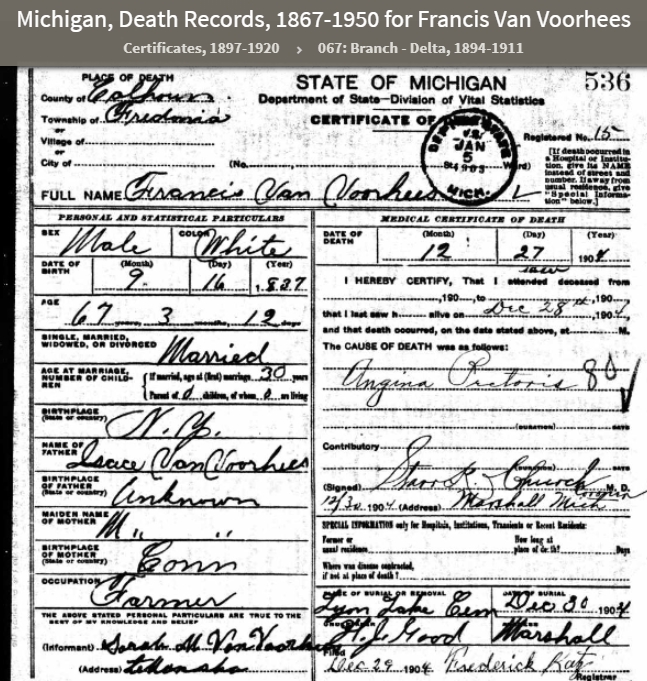 Michigan, Death Records, 1867-1950 for Francis Van Voorhees
Certificates, 1897-1920 › 067: Branch - Delta, 1894-1911
PLACE OF DEATH
STATE OF MICHIGAN
536
County of Calhoun
Department of State—Division of Vital Statistics
Township of Fredonia
or
CERTIFICATE OF
Registered No. 15
Village of
or
City of (No. St. Ward)
JAN
5
1905
MICH.
[If death occurred in a Hospital or Institution, give its NAME instead of street and number. If away from usual residence, give "Special Information" below.]
FULL NAME Francis Van Voorhees
PERSONAL AND STATISTICAL PARTICULARS
SEX Male COLOR White
DATE OF BIRTH (Month) 9 (Day) 16 (Year) 1837
AGE 67 years, 3 months, 12 days
SINGLE, MARRIED, WIDOWED, OR DIVORCED Married
AGE AT MARRIAGE, NUMBER OF CHILDREN
If married, age at (first) marriage 30 years
Parent of 0 children, of whom 0 are living
BIRTHPLACE (State or country) N.Y.
NAME OF FATHER Isace Van Voorhees
BIRTHPLACE OF FATHER (State or country) Unknown
MAIDEN NAME OF MOTHER
BIRTHPLACE OF MOTHER (State or country) Conn
OCCUPATION Farmer
THE ABOVE STATED PERSONAL PARTICULARS ARE TRUE TO THE BEST OF MY KNOWLEDGE AND BELIEF
(Informant) Sarah M Van Voorhees
(Address) Tekonsha
MEDICAL CERTIFICATE OF DEATH
DATE OF DEATH (Month) 12 (Day) 27 (Year) 1904
saw
I HEREBY CERTIFY, That I attended deceased from
, 190 , to , 190
that I last saw h alive on Dec 28th, 1904,
and that death occurred, on the date stated above, at M.
The CAUSE OF DEATH was as follows:
Angina Pectoris 80
(DURATION) DAYS
Contributory
(DURATION) DAYS
(Signed) Starr K. Church M. D.
Coroner
12/30 1904 (Address) Marshall Mich
SPECIAL INFORMATION only for Hospitals, Institutions, Transients or Recent Residents:
Former or usual residence
How long at place of death? Days
Where was disease contracted, if not at place of death?
PLACE OF BURIAL OR REMOVAL Lyon Lake Cem
DATE OF BURIAL Dec 30 1904
H. J. Good Marshall
Filed Dec 29 1904 Frederick Katz
Registrar